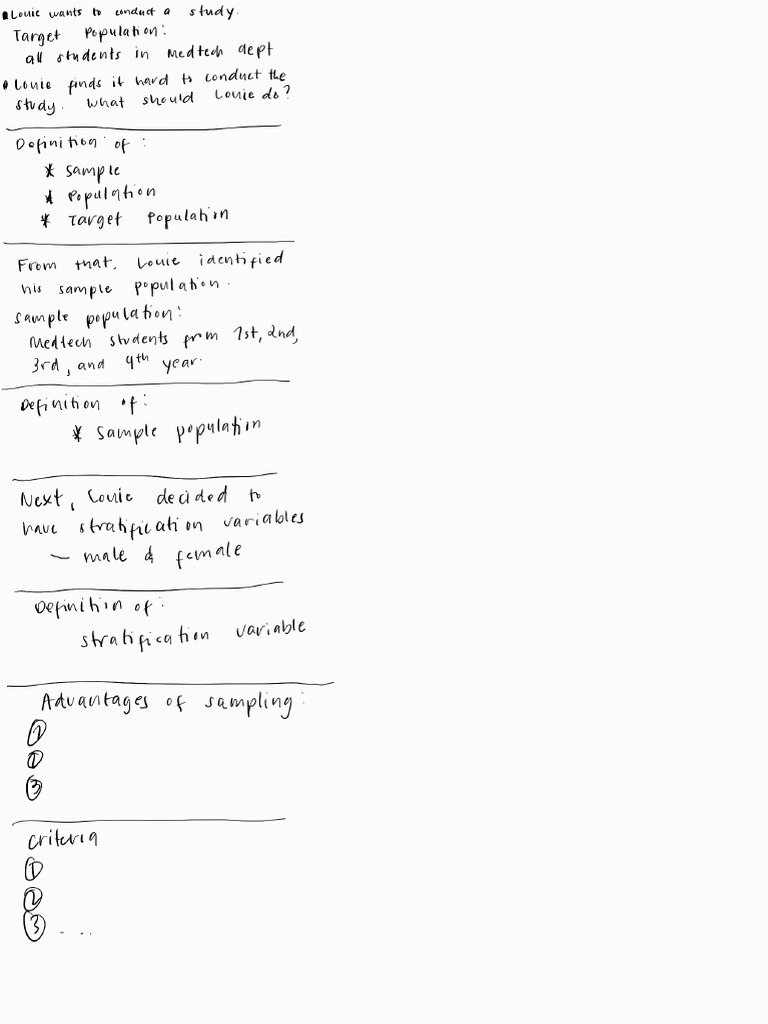 • Louie wants to conduct a study.
Target Population:
all students in Medtech dept
• Louie finds it hard to conduct the
study. What should Louie do?
Definition of:
* Sample
* Population
* Target Population
From that, Louie identified
his sample population.
Sample population:
Medtech students from 1st, 2nd,
3rd, and 4th year.
Definition of:
* Sample population
Next, Louie decided to
have stratification variables
— male & female
Definition of:
stratification variable
Advantages of sampling:
①
①
③
Criteria
①
②
③ - ...